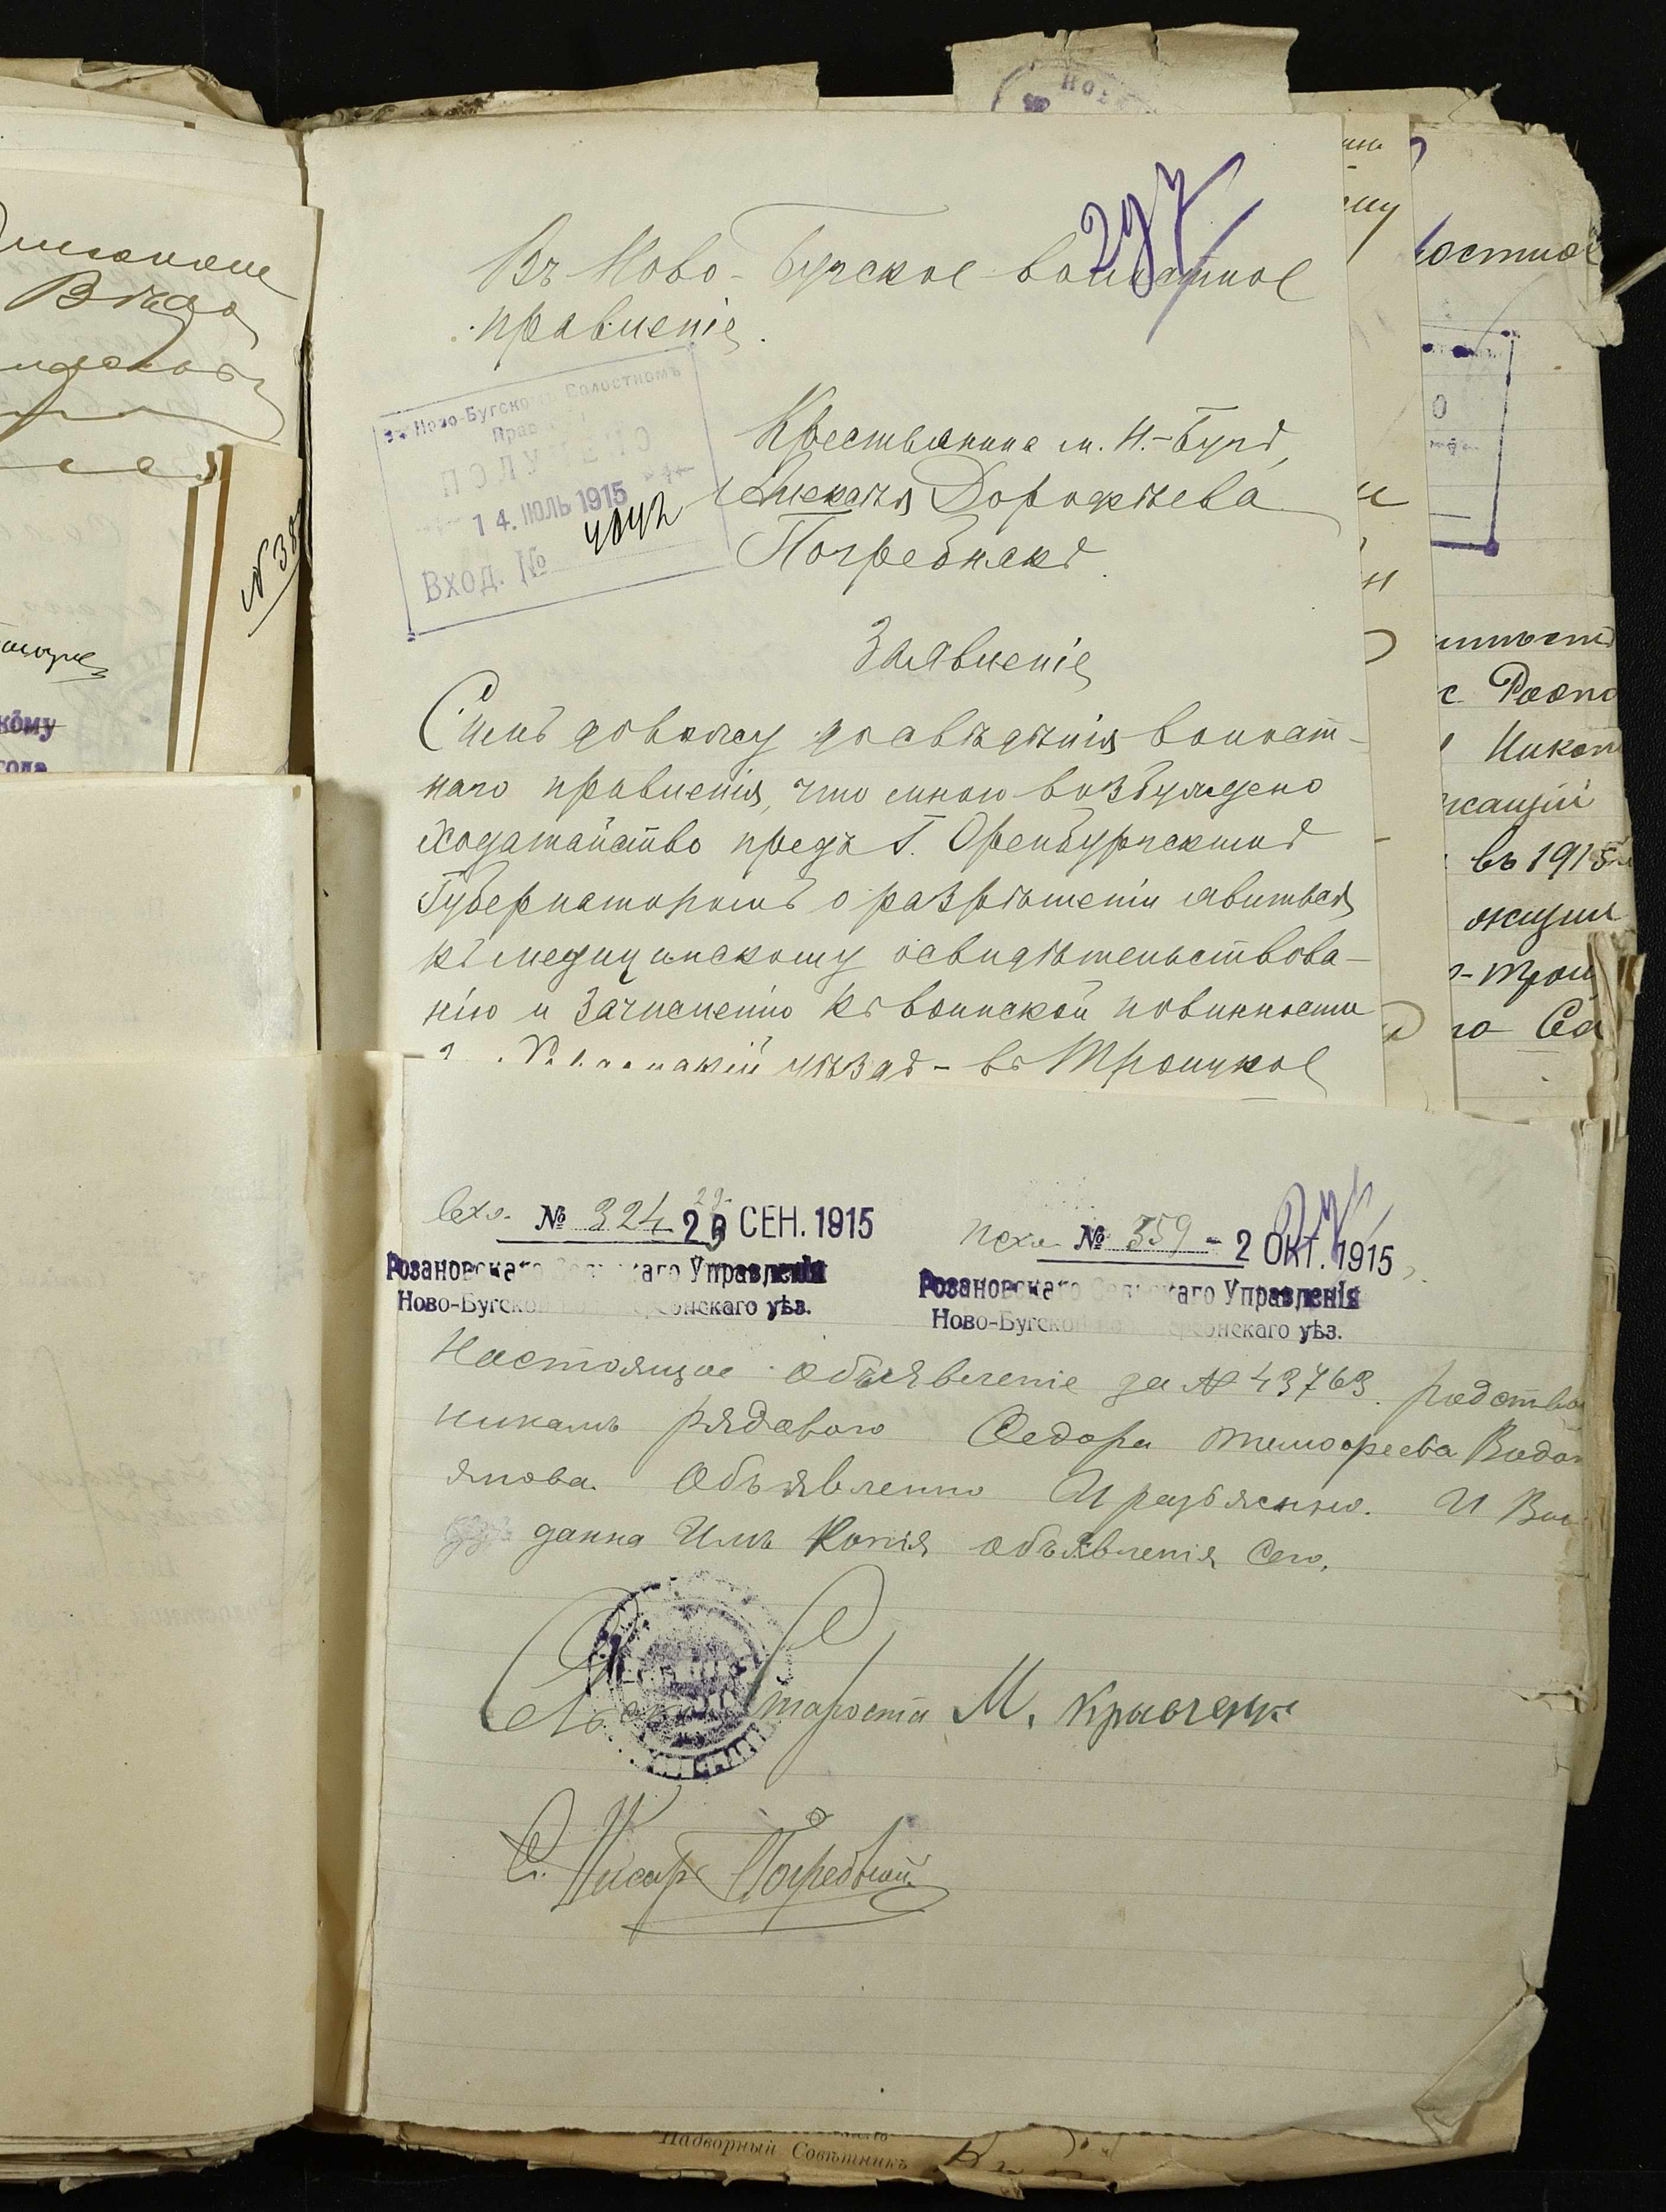 297
Въ Ново-Бугское волостное
правленіе.
Въ Ново-Бугскомъ Волостномъ
ПОЛУЧЕНО
14. ІЮЛЬ 1915
Вход. № 4042
Крестьянина м. Н.-Буга,
Алексѣя Дорофѣева
Погребнякъ.
Заявленіе
Симъ довожу до свѣдѣнія волост-
наго правленія, что мною возбуждено
ходатайство предъ Г. Оренбургскимъ
Губернаторомъ о разрѣшеніи явиться
къ медицинскому освидѣтельствова-
нію и зачисленію къ воинской повинности
уѣздъ - въ Троицкое
№ 38
кому
года
остное
въ 1915
вхо. № 324 СЕН. 1915
Розановскаго Сельскаго Управленія
Ново-Бугской вол. Херсонскаго уѣз.
исхо № 359 - 2 ОКТ. 1915
Розановскаго Сельскаго Управленія
Ново-Бугской вол. Херсонскаго уѣз.
Настоящое объявленіе за № 43763. родствен
никамъ рядового Федора Тимофеева
Объявленно И разъяснно. И Вы
данна Имъ Копія объявленія сего.
Староста М. Кравченко
С. Писарь Погребной
Надворный Совѣтникъ